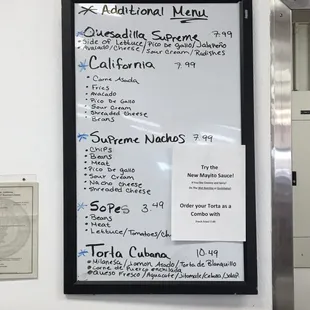 * Additional Menu
* Quesadilla Supreme 7.99
Side of Lettuce/Pico De gallo/Jalapeño
Avacado/Cheese/Sour Cream/Radishes
* California 7.99
• Carne Asada
• Fries
• Avacado
• Pico De Gallo
• Sour Cream
• Shredded Cheese
• Beans
* Supreme Nachos 7.99
• Chips
• Beans
• Meat
• Pico De gallo
• Sour Cream
• Nacho Cheese
• Shredded Cheese
Try the
New Mayito Sauce!
Order your Torta as a
Combo with
* Sopes 3.49
• Beans
• Meat
• Lettuce/Tomatoes/
* Torta Cubana 10.49
• Milanesa/Jamon Asado/Torta de Blanquillo
• Carne de Puerco enchilada
• Queso Fresco/Aguacate/Jitomate/